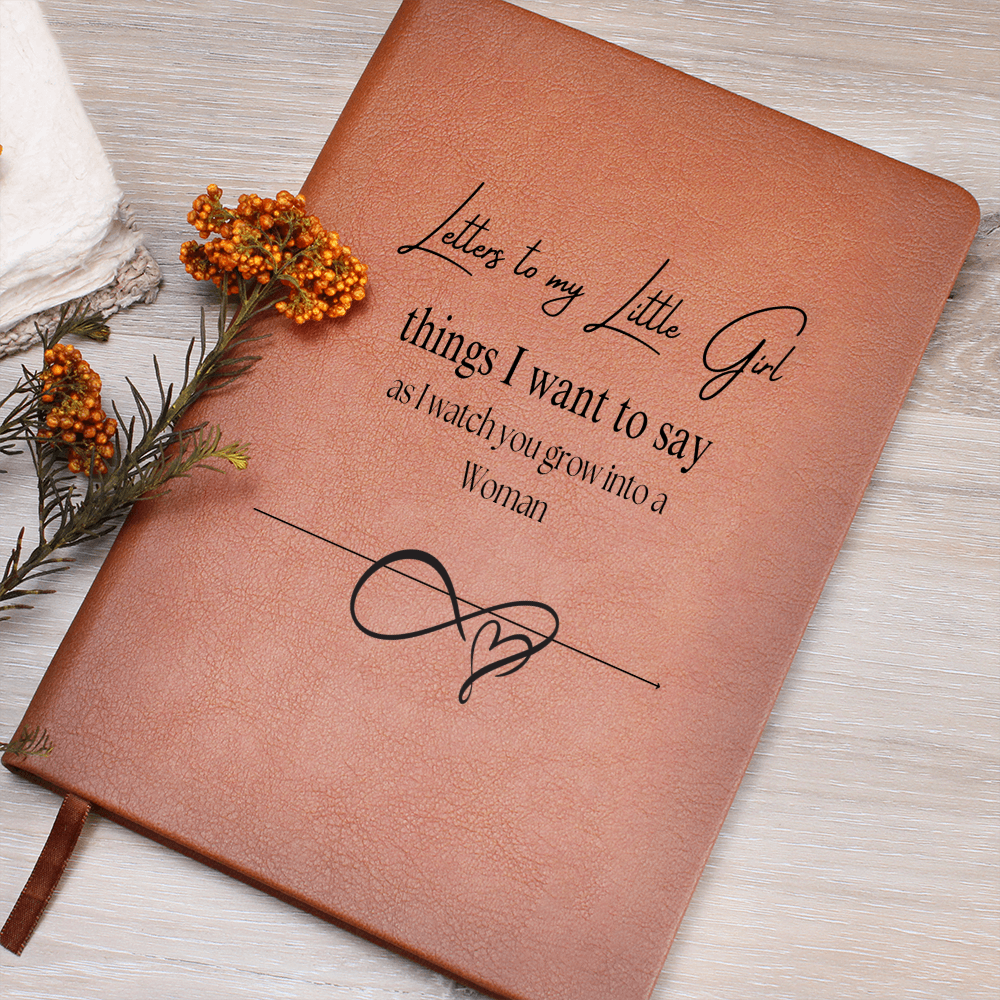 Letters to my Little Girl
things I want to say
as I watch you grow into a
Woman